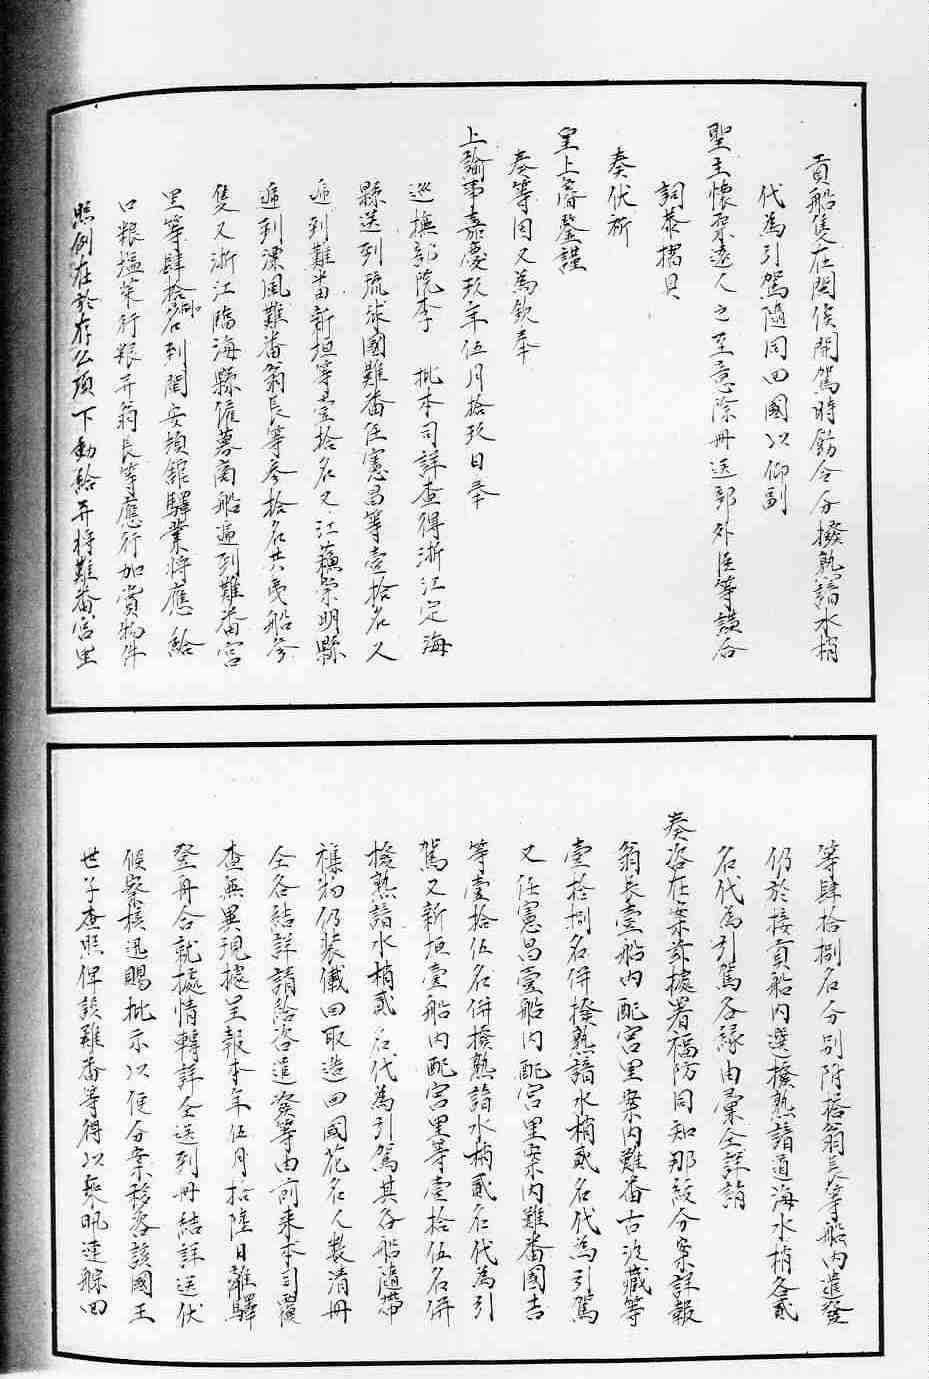 貢船隻在閩俟開駕時飭令分撥熟諳水梢
代為引駕隨同回國以仰副
聖主懷柔遠人之至意除冊送部外臣等謹合
詞恭摺具
奏伏祈
皇上睿鑒謹
奏等因又為欽奉
上諭事嘉慶玖年伍月拾玖日奉
巡撫部院李 批本司詳查得浙江定海
縣送到琉球國難番任憲昌等壹拾名又
遞到難番新垣等壹拾名又江蘇崇明縣
遞到漂風難番翁長等叁拾名共夷船叁
隻又浙江臨海縣僱募商船遞到難番宮
里等肆拾捌名到閩安頓館驛業將應給
口粮塩菜行粮并翁長等應行加賞物件
照例在於存公項下動給并將難番宮里
等肆拾捌名分別附搭翁長等船內遣發
仍於接貢船內選撥熟諳道海水梢各貳
名代為引駕各緣由彙仝詳請
奏咨在案茲據署福防同知那紱分案詳報
翁長壹船內配宮里案內難番古波藏等
壹拾捌名併撥熟諳水梢貳名代為引駕
又任憲昌壹船內配宮里案內難番國吉
等壹拾伍名併撥熟諳水梢貳名代為引
駕又新垣壹船內配宮里等壹拾伍名併
撥熟諳水梢貳名代為引駕其各船隨帶
穕物仍裝儎回取造回國花名人数清冊
仝各結詳請給咨遣發等由前来本司覆
查無異現據呈報本年伍月拾陸日離驛
登舟合就據情轉詳仝送到冊結詳送伏
候察核迅賜批示以便分案移咨該國王
世子查照俾該難番等得以乘風連䑸回